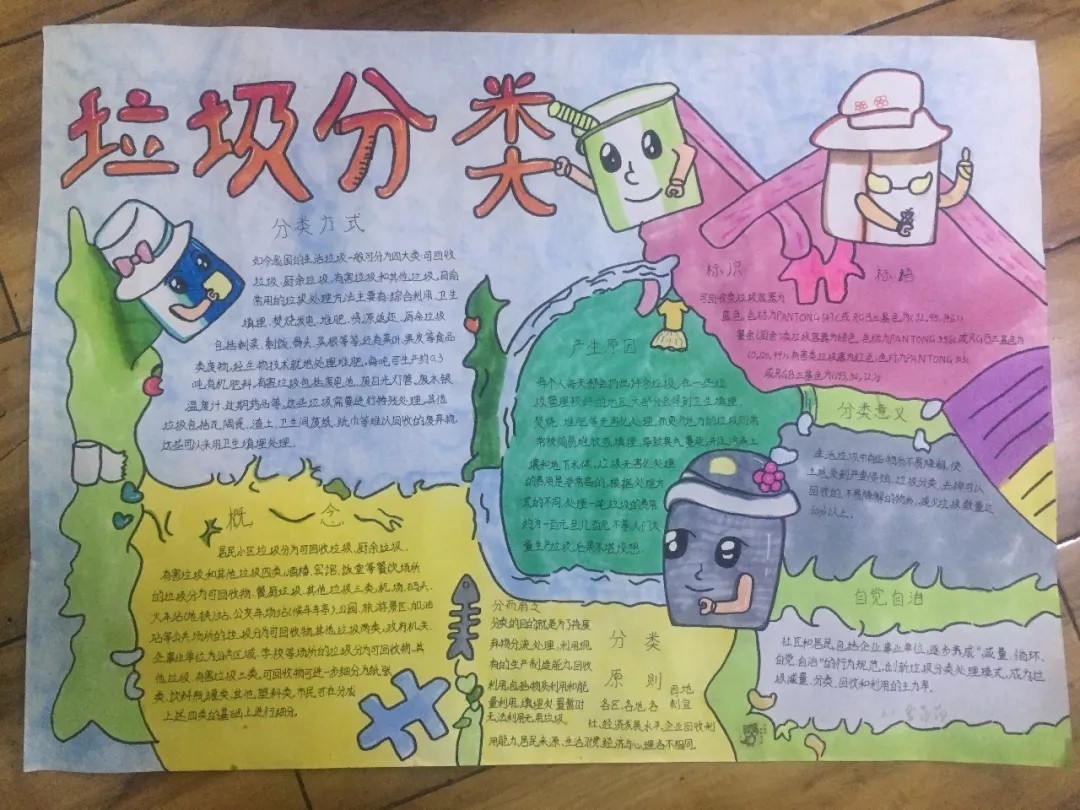 垃圾分类
分类方式
如今我国的生活垃圾一般可分为四大类:可回收
垃圾、厨余垃圾、有害垃圾和其他垃圾,目前
常用的垃圾处理方法主要有:综合利用、卫生
填埋、焚烧发电、堆肥、资源返还。厨余垃圾
包括剩菜、剩饭、骨头、菜根等等,还有菜叶、果皮等食品
类废物,经生物技术就地处理堆肥,每吨可生产约0.3
吨有机肥料。有害垃圾包括废电池、废日光灯管、废水银
温度计、过期药品等,这些垃圾需要进行特殊处理。其他
垃圾包括瓦、陶瓷、渣土、卫生间废纸、纸巾等难以回收的废弃物,
这些可以采用卫生填埋处理。
标识
标码
可回收类垃圾容器为
蓝色,色标为PANTONG
产生原因
每个人每天都会扔出许多垃圾,在一些垃
圾管理较好的地区大部分会得到卫生填埋、
焚烧、堆肥等无害化处理,而更多地方的垃圾则常
常被简易堆放或填埋,导致臭气蔓延,并且污染土
壤和地下水体。垃圾无害化处理
的费用是非常高的,根据处理方
式的不同,处理一吨垃圾的费用
约为一百元至几百元不等。人们大
量生产垃圾,后果不堪设想。
分类意义
生活垃圾中有些物质不易降解,使
土地受到严重侵蚀。垃圾分类,去掉可以
回收的、不易降解的物质,减少垃圾数量达
60%以上。
概 念
居民小区垃圾分为可回收垃圾、厨余垃圾、
有害垃圾和其他垃圾四类,酒楼、宾馆、饭堂等餐饮场所
的垃圾分为可回收物、餐厨垃圾、其他垃圾三类,机场、码头、
火车站、地铁站、公交车场站(候车车亭)、公园、旅游景区、加油
站等公共场所的垃圾分为可回收物、其他垃圾两类,政府机关、
企事业单位、办公区域、学校等场所的垃圾分为可回收物、其
他垃圾、有害垃圾三类。可回收物可进一步细分为纸张
类、饮料瓶罐类、其他、塑料类,市民可在分成
上述四类的基础上进行细分。
分类
原则
分而用之
分类的目的就是为了将废
弃物分流处理,利用现
有的生产制造能力,回收
利用,包括物质利用和能
量利用,填埋处置暂时
无法利用无用垃圾。
因地
制宜
各区、各地、各
社、经济发展水平、企业回收利
用能力、居民来源、生活习惯、经济与心理各不相同。
自觉自治
社区和居民,包括企业事业单位,逐步养成“减量、循环、
自觉、自治”的行为规范,创新垃圾分类处理模式,成为垃
圾减量、分类、回收和利用的主力军。